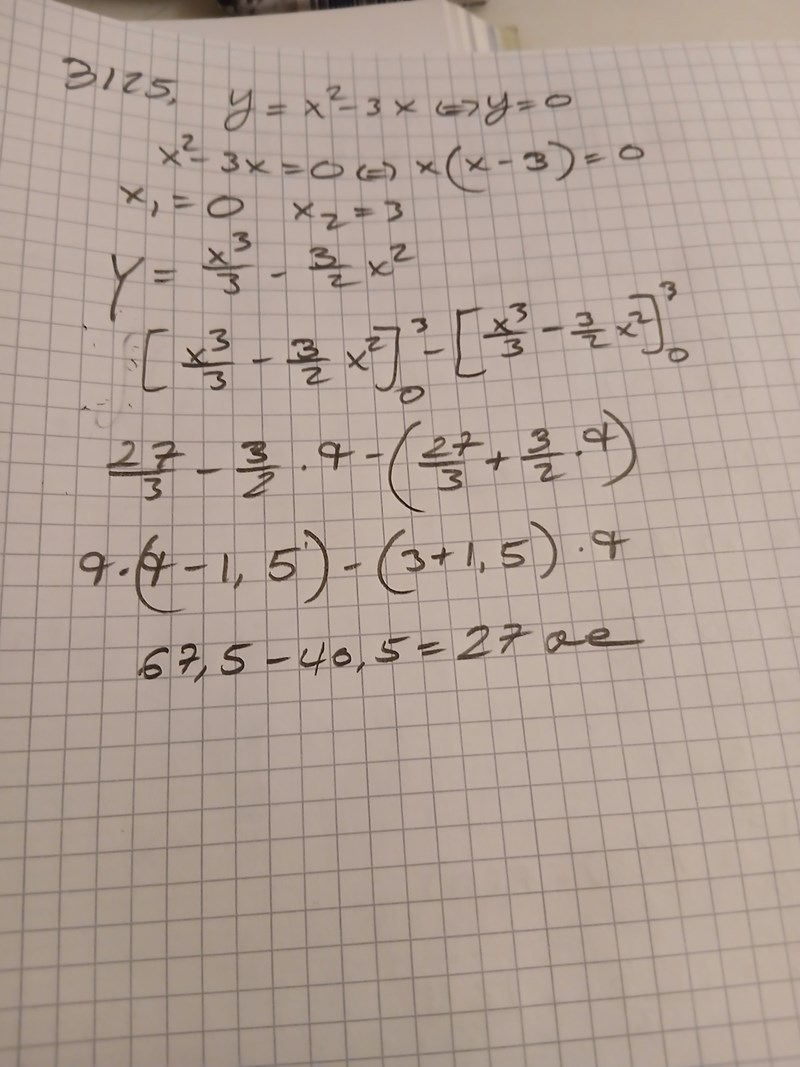 3125. y = x² - 3x ⇔ y = 0
x² - 3x = 0 ⇔ x(x - 3) = 0
x₁ = 0 x₂ = 3
Y = x³/3 - 3/2 x²
[x³/3 - 3/2 x²]₀³ - [x³/3 - 3/2 x²]₀³
27/3 - 3/2 · 9 - (27/3 + 3/2 · 9)
9 · (9 - 1,5) - (3 + 1,5) · 9
67,5 - 40,5 = 27 ae